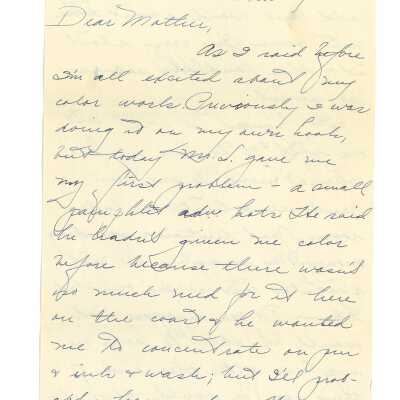 Dear Mother,
As I said before
I'm all excited about my
color work. Previously I was
doing it on my own hook,
but today Mr. S. gave me
my first problem - a small
pamphlet adv. hats. He said
he hadn't given me color
before because there wasn't
so much need for it here
on the coast & he wanted
me to concentrate on pen
& ink & wash; but I'll prob-